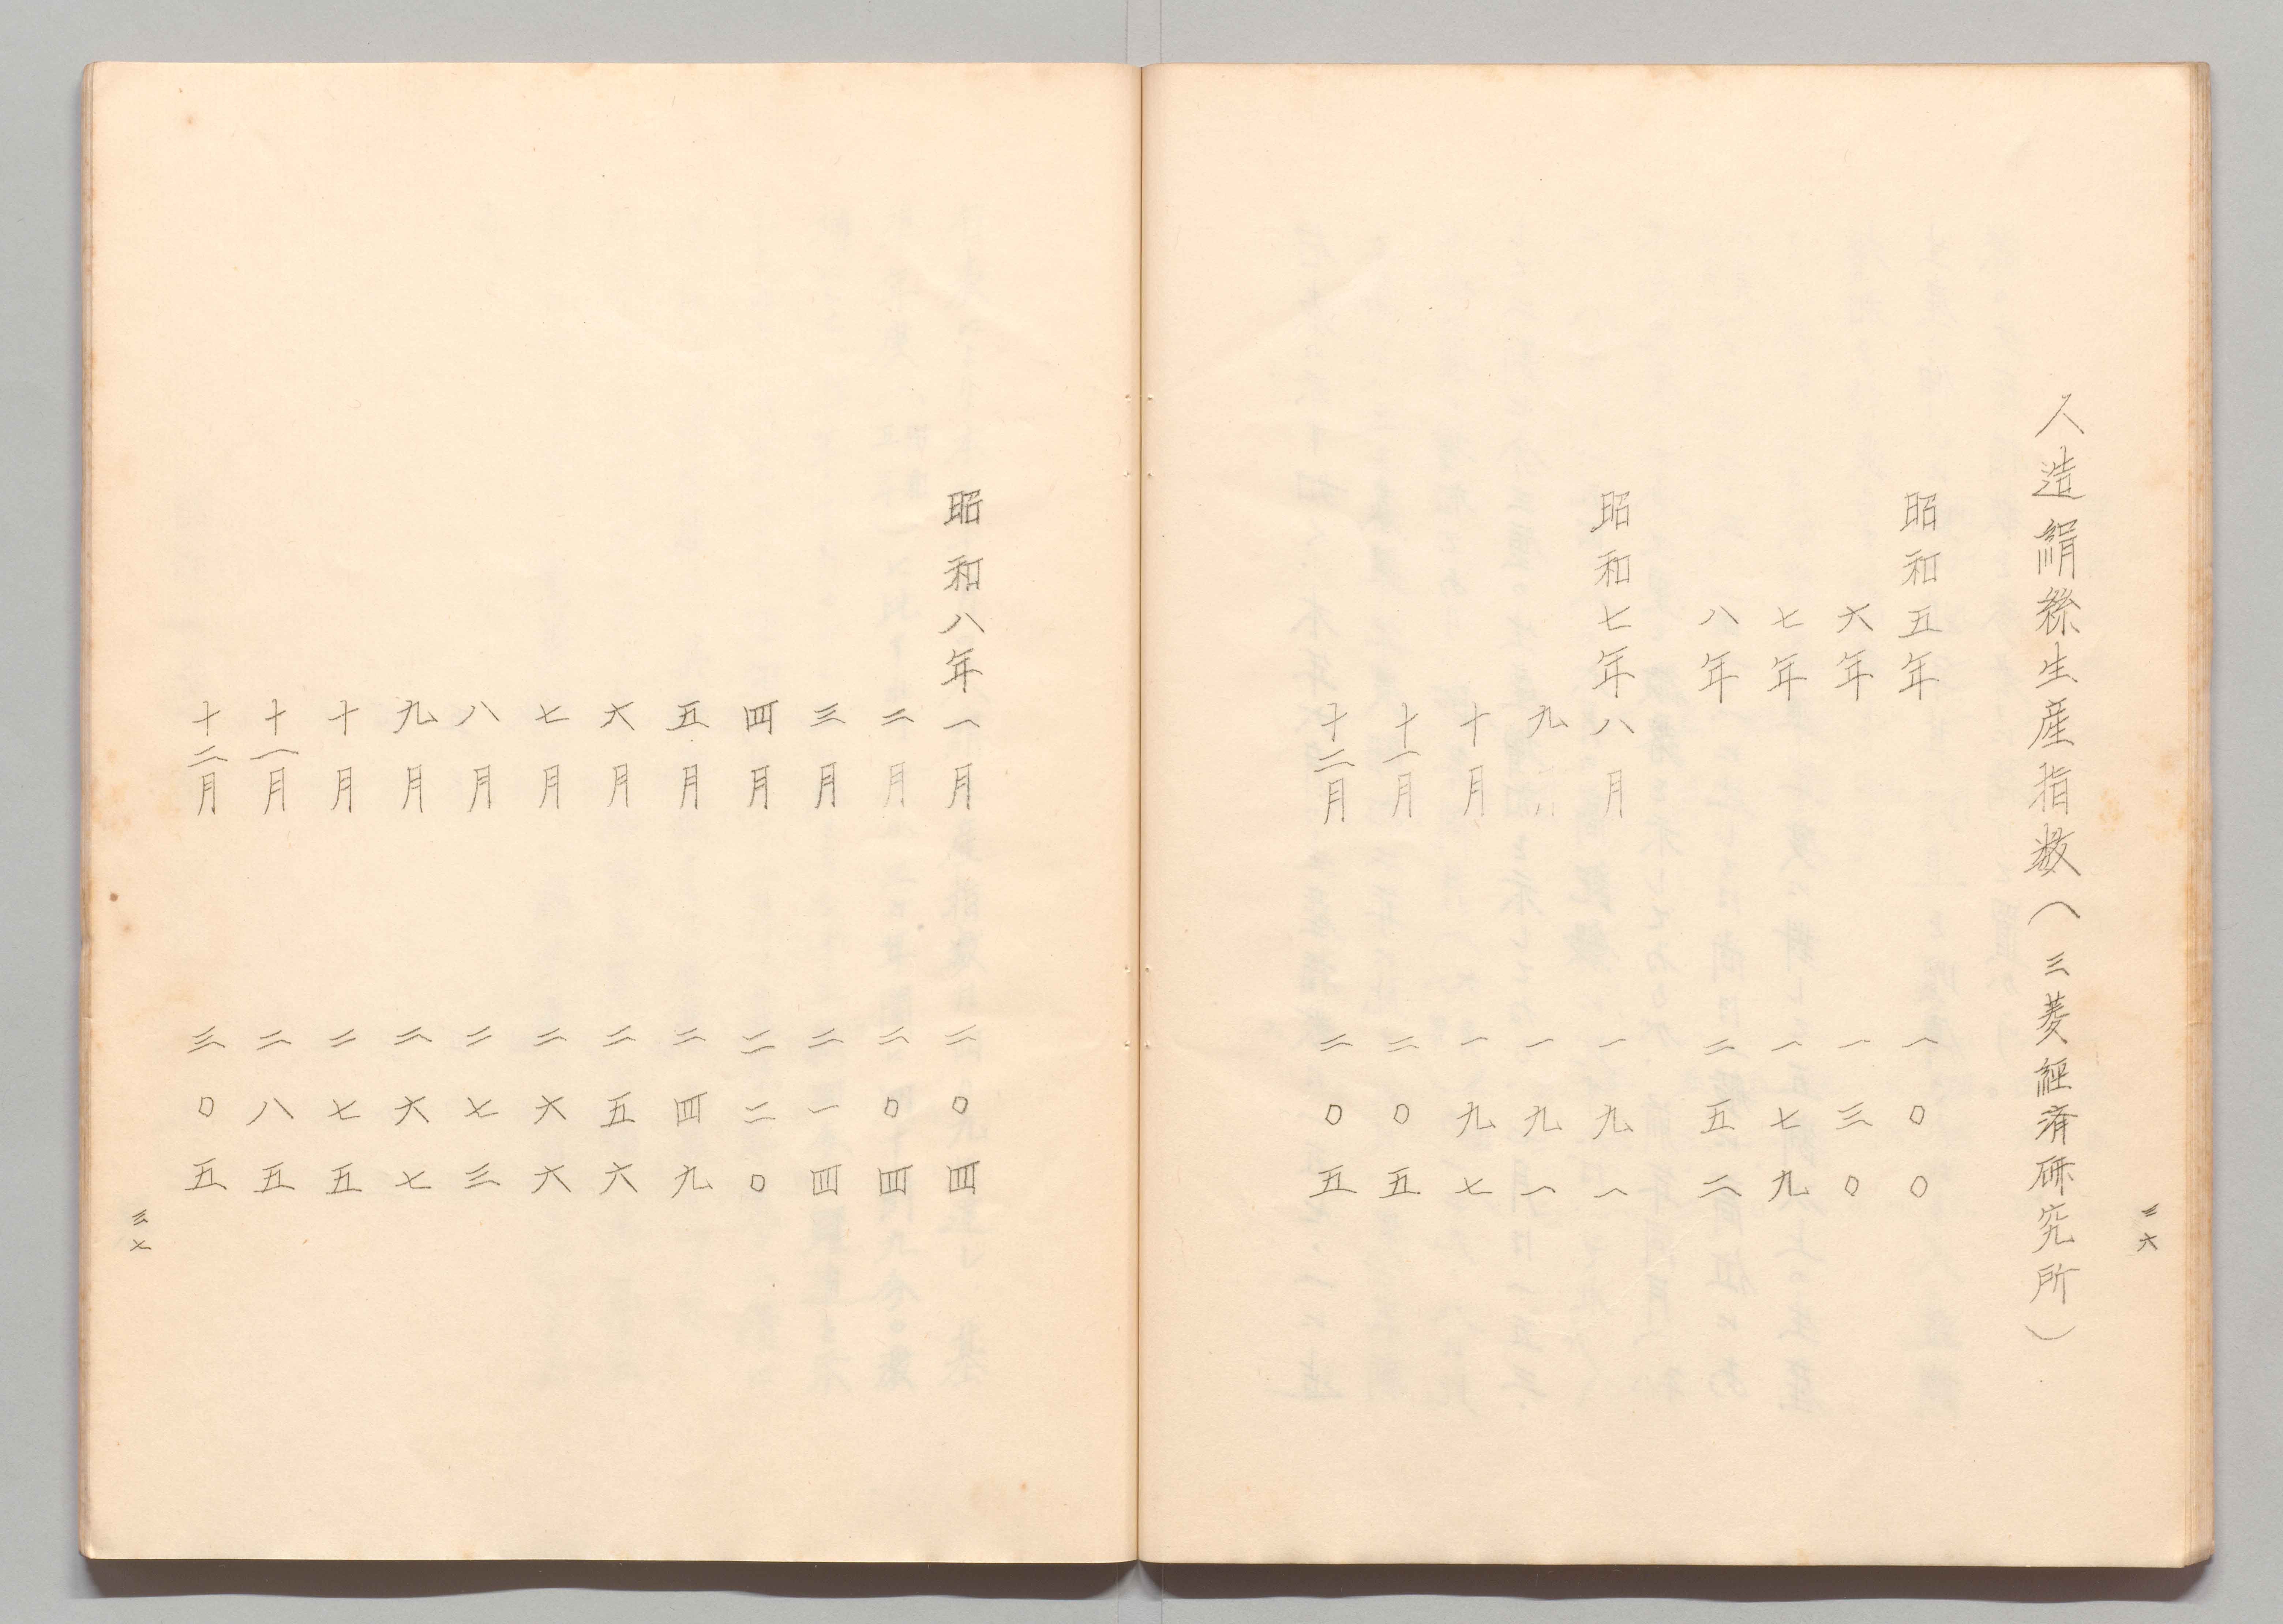 人造絹絲生産指数（三菱經済研究所）
昭和五年 一〇〇
六年 一三〇
七年 一七九
八年 二五二
昭和七年八月 一九一
九月 一九一
十月 一九七
十一月 二〇五
十二月 二〇五
三六
昭和八年一月 二〇四
二月 二〇四
三月 二一四
四月 二二〇
五月 二四九
六月 二五六
七月 二六六
八月 二七三
九月 二六七
十月 二七五
十一月 二八五
十二月 三〇五
三七